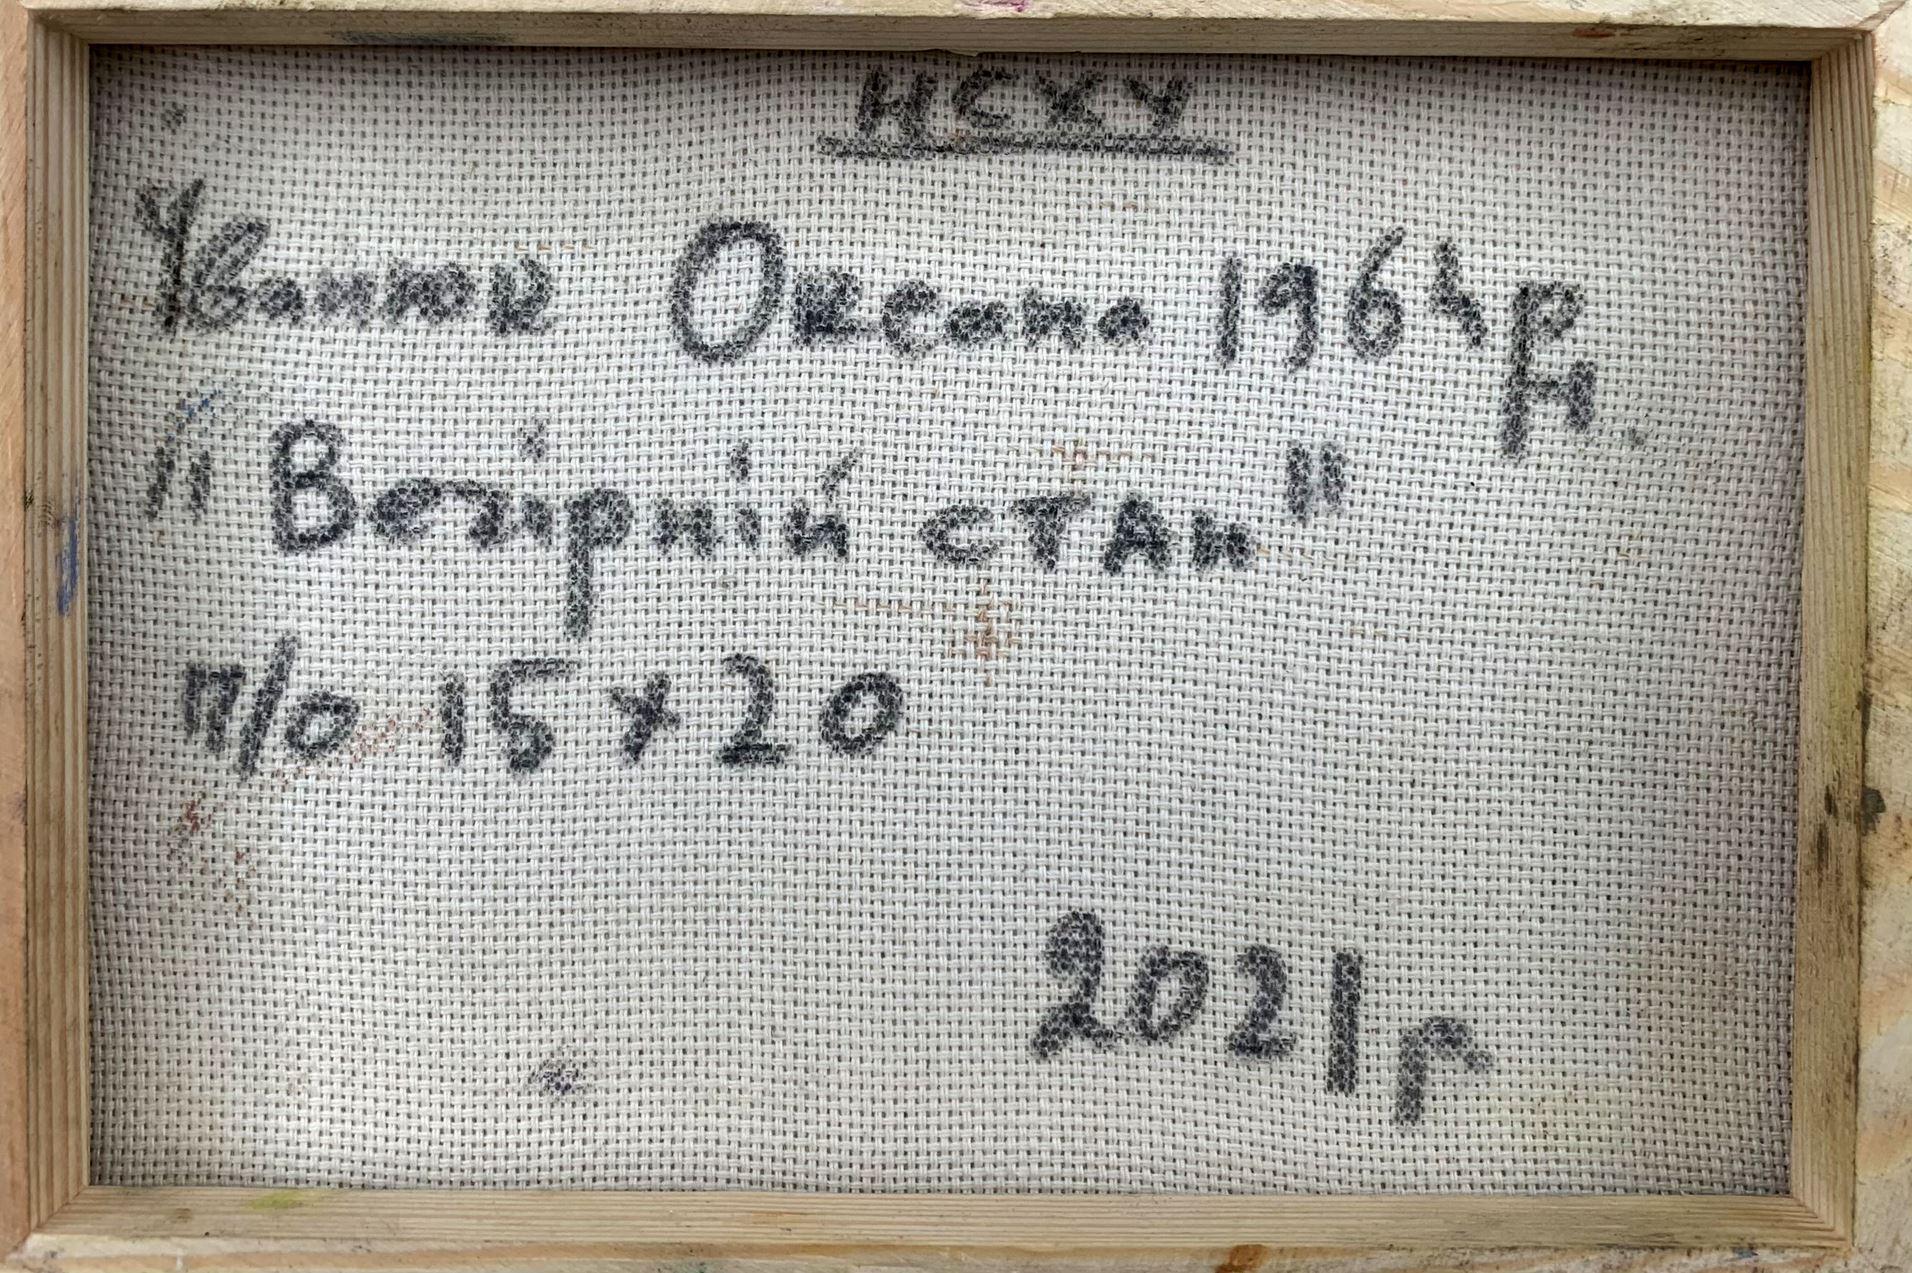 НСХУ
Іванюк Оксана 1964 р.н.
"Вечірній стан"
п/о 15 х 20
2021р